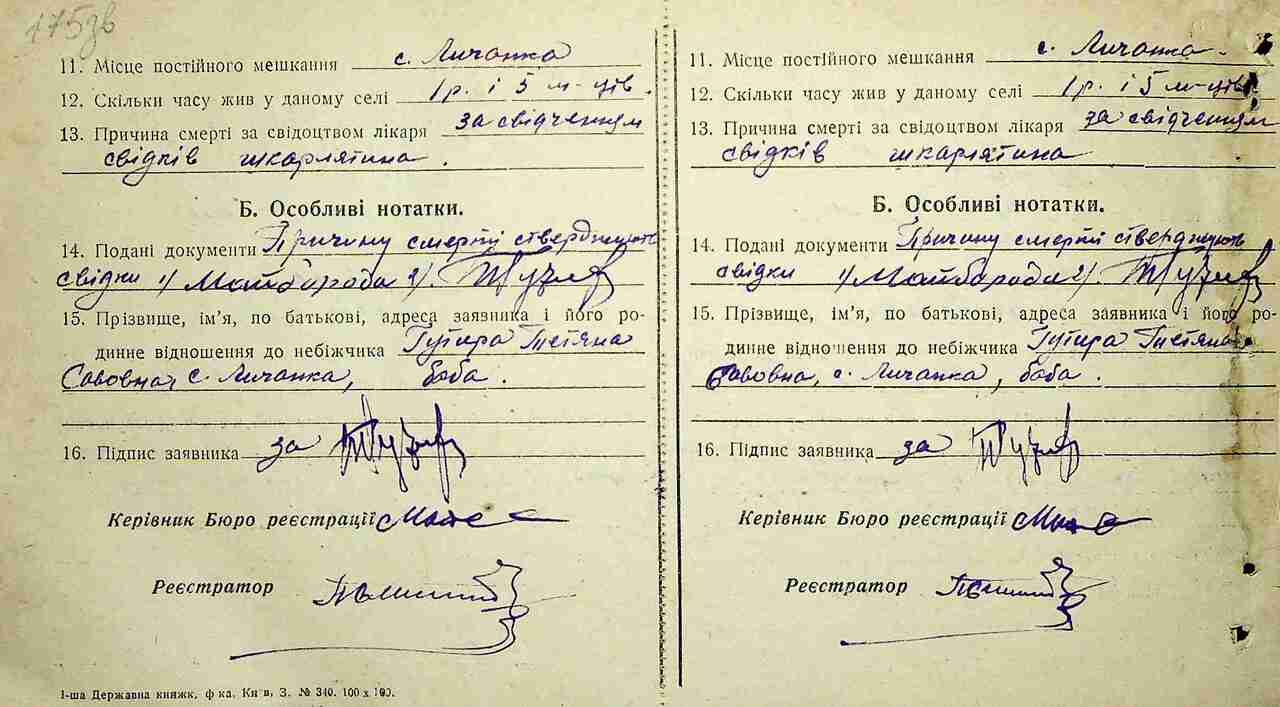 175зв
11. Місце постійного мешкання с. Личанка
12. Скільки часу жив у даному селі 1р. і 5 м-ців.
13. Причина смерті за свідоцтвом лікаря за свідченням
свідків шкарлятина.
Б. Особливі нотатки.
14. Подані документи Причину смерті стверджують
свідки 1) Майборода 2).
15. Прізвище, ім'я, по батькові, адреса заявника і його ро-
динне відношення до небіжчика Гутира Тетяна
Савовна, с. Личанка, баба.
16. Підпис заявника за
Керівник Бюро реєстрації
Реєстратор
1-ша Державна книжк. ф-ка, Київ, З. № 340. 100 х 100.
11. Місце постійного мешкання с. Личанка.
12. Скільки часу жив у даному селі 1р. і 5 м-ців
13. Причина смерті за свідоцтвом лікаря за свідченням
свідків шкарлятина
Б. Особливі нотатки.
14. Подані документи Причину смерті стверджують
свідки 1) Майборода 2).
15. Прізвище, ім'я, по батькові, адреса заявника і його ро-
динне відношення до небіжчика Гутира Тетяна
Савовна, с. Личанка, баба.
16. Підпис заявника за
Керівник Бюро реєстрації
Реєстратор